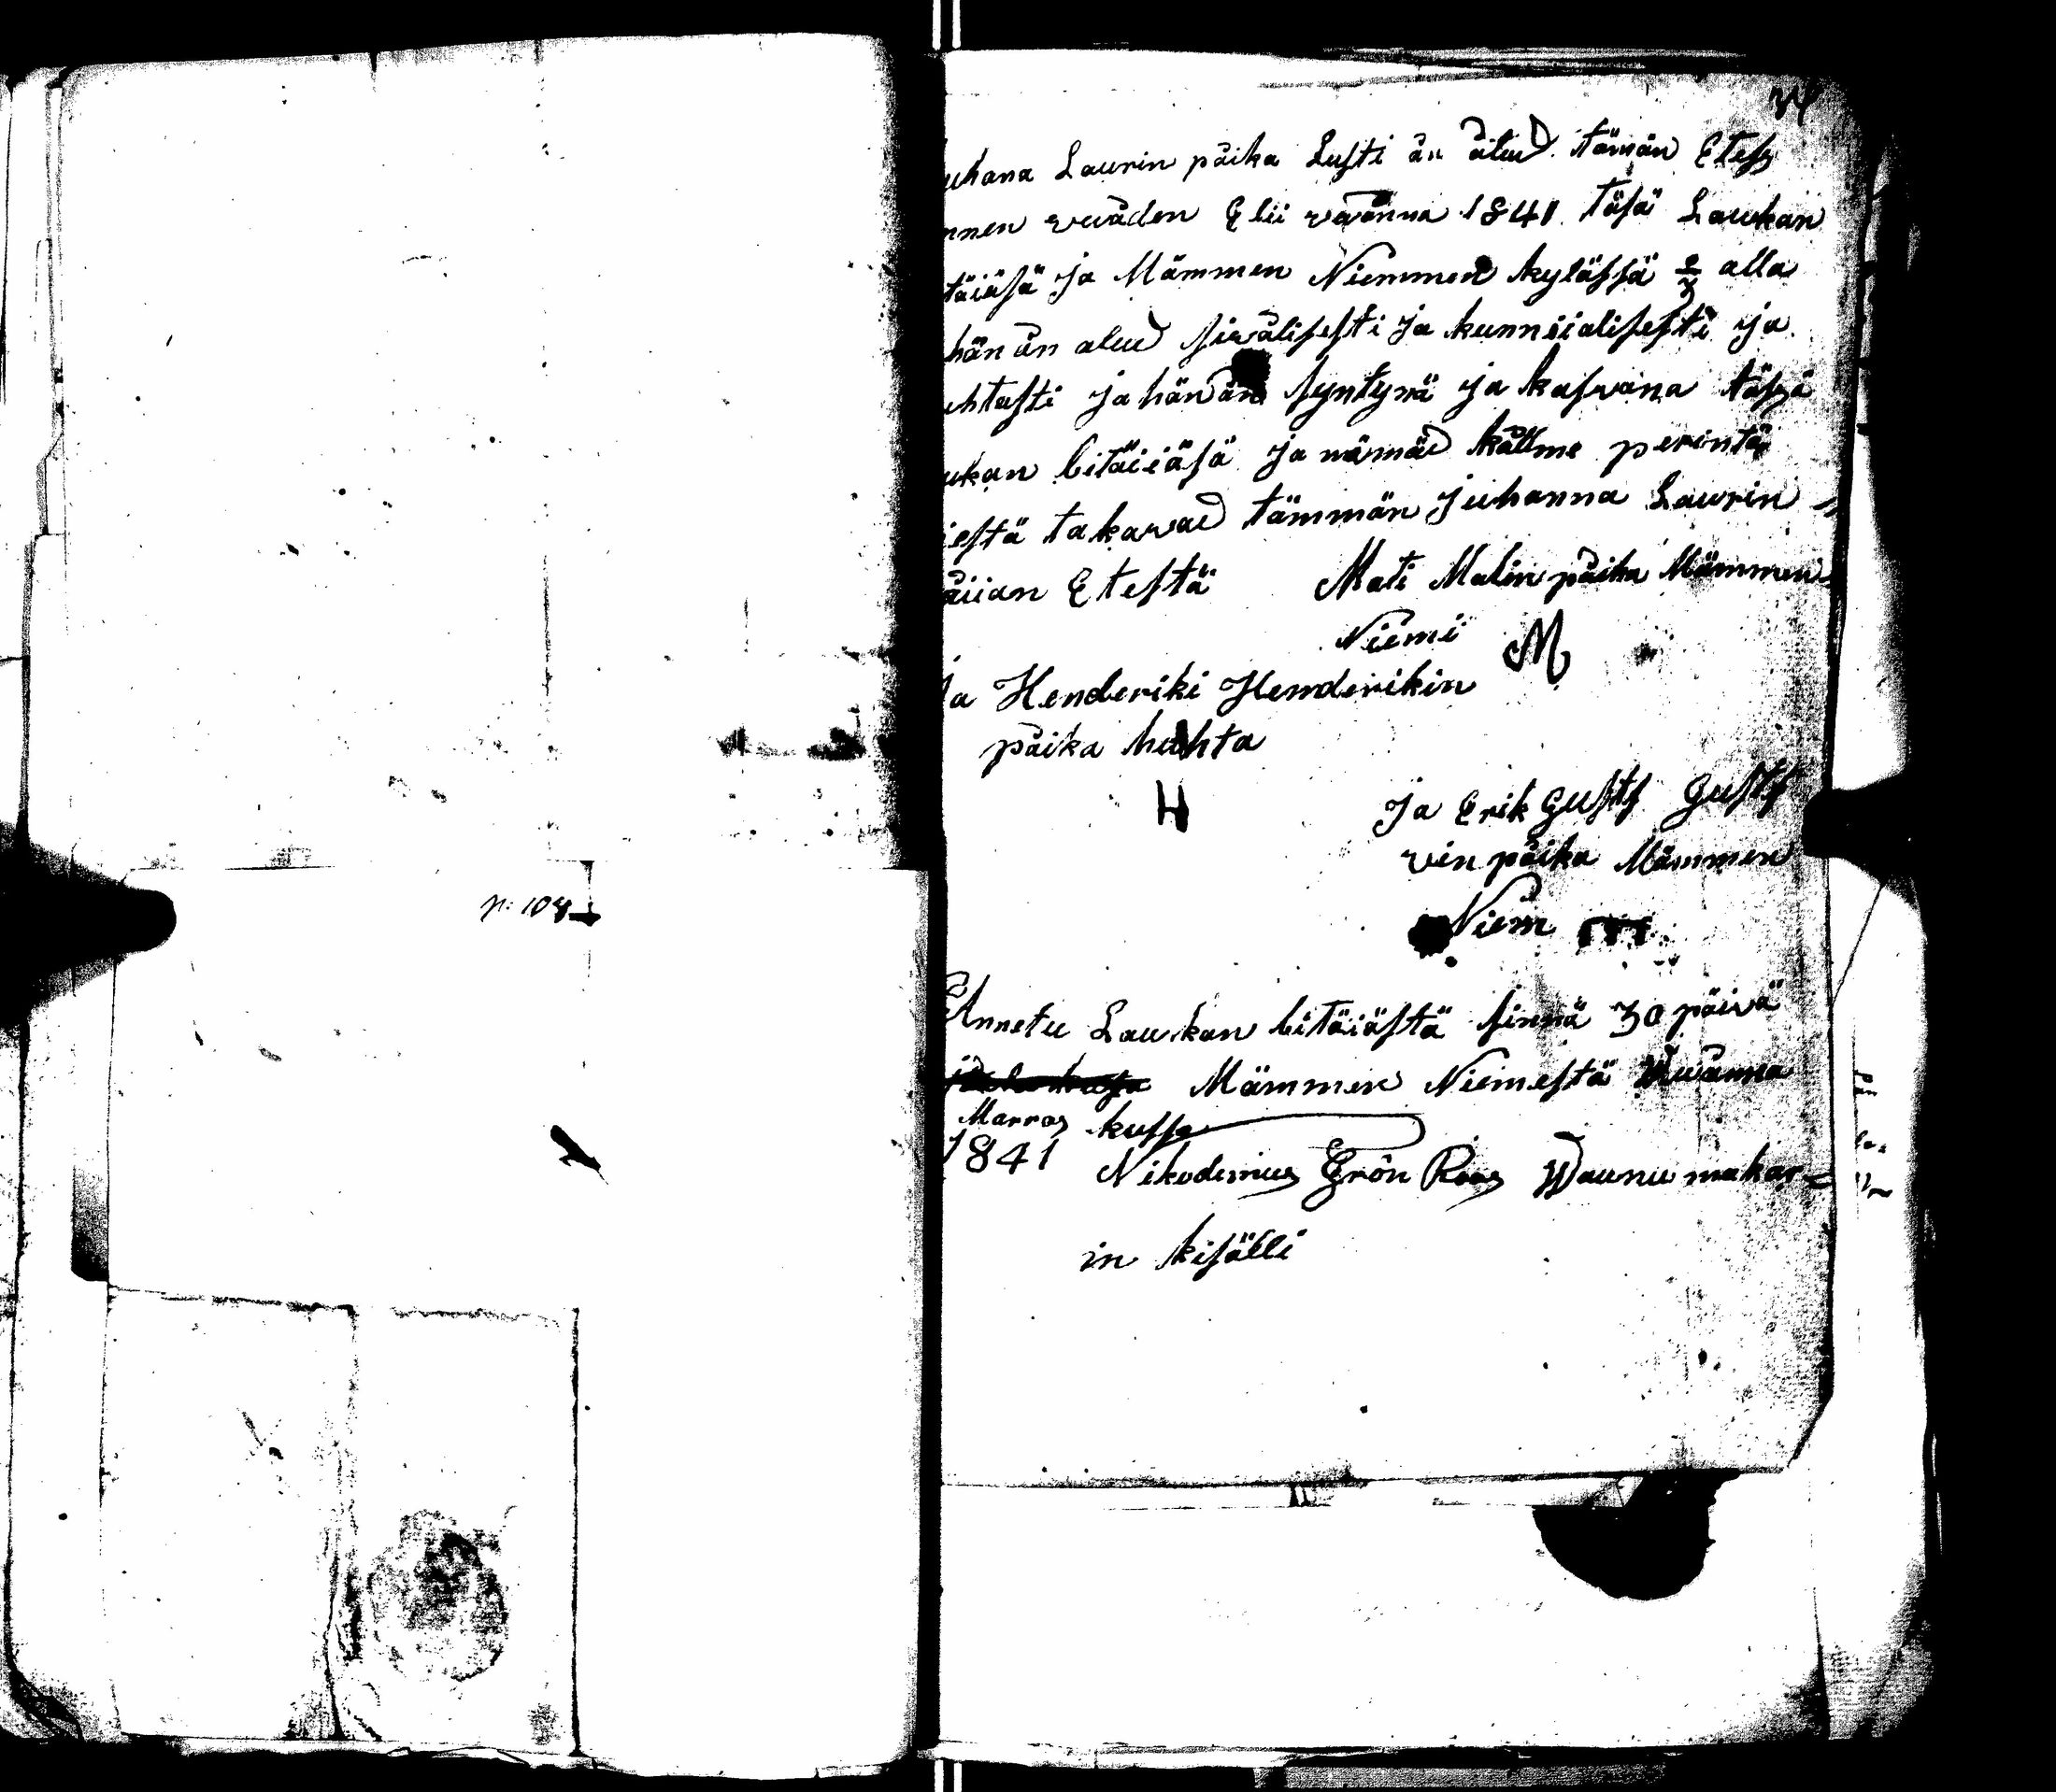 34
uhana Laurin påika Lusti ån ålud tämän Etes
nnen wuåden Elii wuånna 1841 täsä Laukan
täiäsä ja Mämmen Niemmen kylässä 2/3 alla
hän ån alud siwälisesti ja kunniialisesti ja
uhtasti ja hän ån syntynä ja kaswana täsä
ukan bitäiäsä ja nämäd kålme perintä
iestä takawad tämmän Juhanna Laurin
åiian Etestä Mati Matin påika Mämmen
Niemi M
Ja Henderiki Henderikin
påika huhta
H
Ja Erik Gustf Gustf
vin påika Mämmen
Niem E
n: 108
Annetu Laukan bitäiästä sinnä 30 päivä
Mämmen Niemestä Wuanna
Marras kussa
1841 Nikodemus Grön Roos Waunu makar
in kisälli